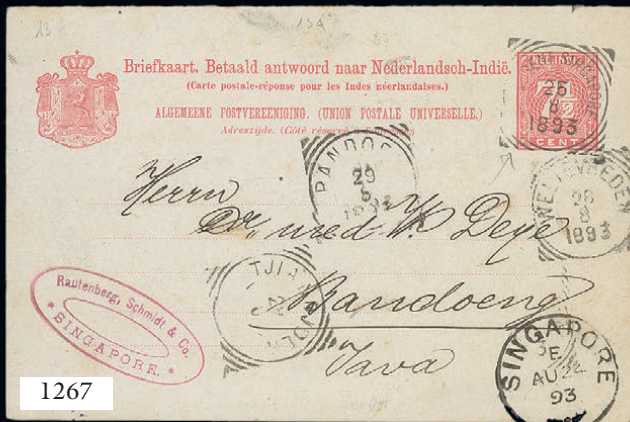 Briefkaart. Betaald antwoord naar Nederlandsch-Indië.
(Carte postale-réponse pour les Indes néerlandaises.)
ALGEMEENE POSTVEREENIGING. (UNION POSTALE UNIVERSELLE.)
Adreszijde. (Côté réservé
7½
CENT
SINGAPORE
25
8
1893
BANDOE
29
8
WELTEVREDEN
28
8
1893
Herrn
Dr. med. W. Deye
Bandoeng
Java
TJI
Rautenberg, Schmidt & Co.
* SINGAPORE. *
SINGAPORE
E
AU 22
93
1267